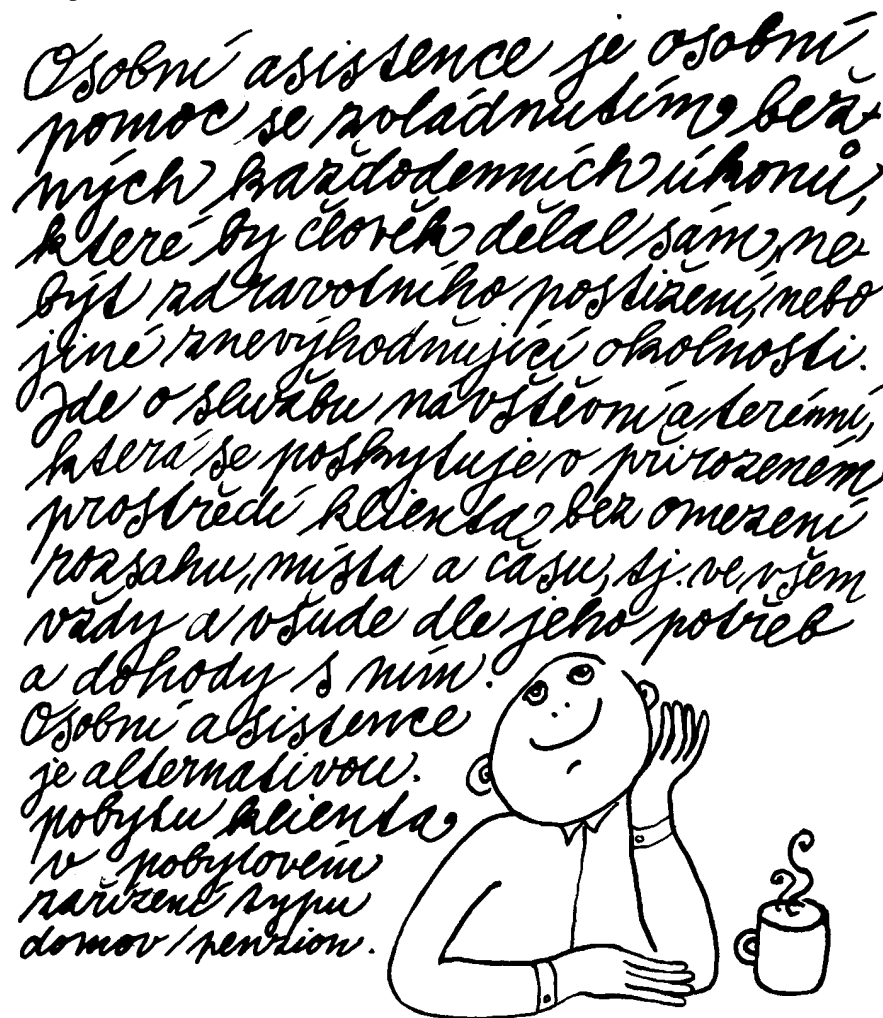 Osobní asistence je osobní
pomoc se zvládnutím běž-
ných každodenních úkonů,
které by člověk dělal sám, ne-
být zdravotního postižení, nebo
jiné znevýhodňující okolnosti.
Jde o službu návštěvní a terénní,
která se poskytuje v přirozeném
prostředí klienta, bez omezení
rozsahu, místa a času, tj. ve všem
vždy a všude dle jeho potřeb
a dohody s ním.
Osobní asistence
je alternativou
pobytu klienta
v pobytovém
zařízení typu
domov/penzion.